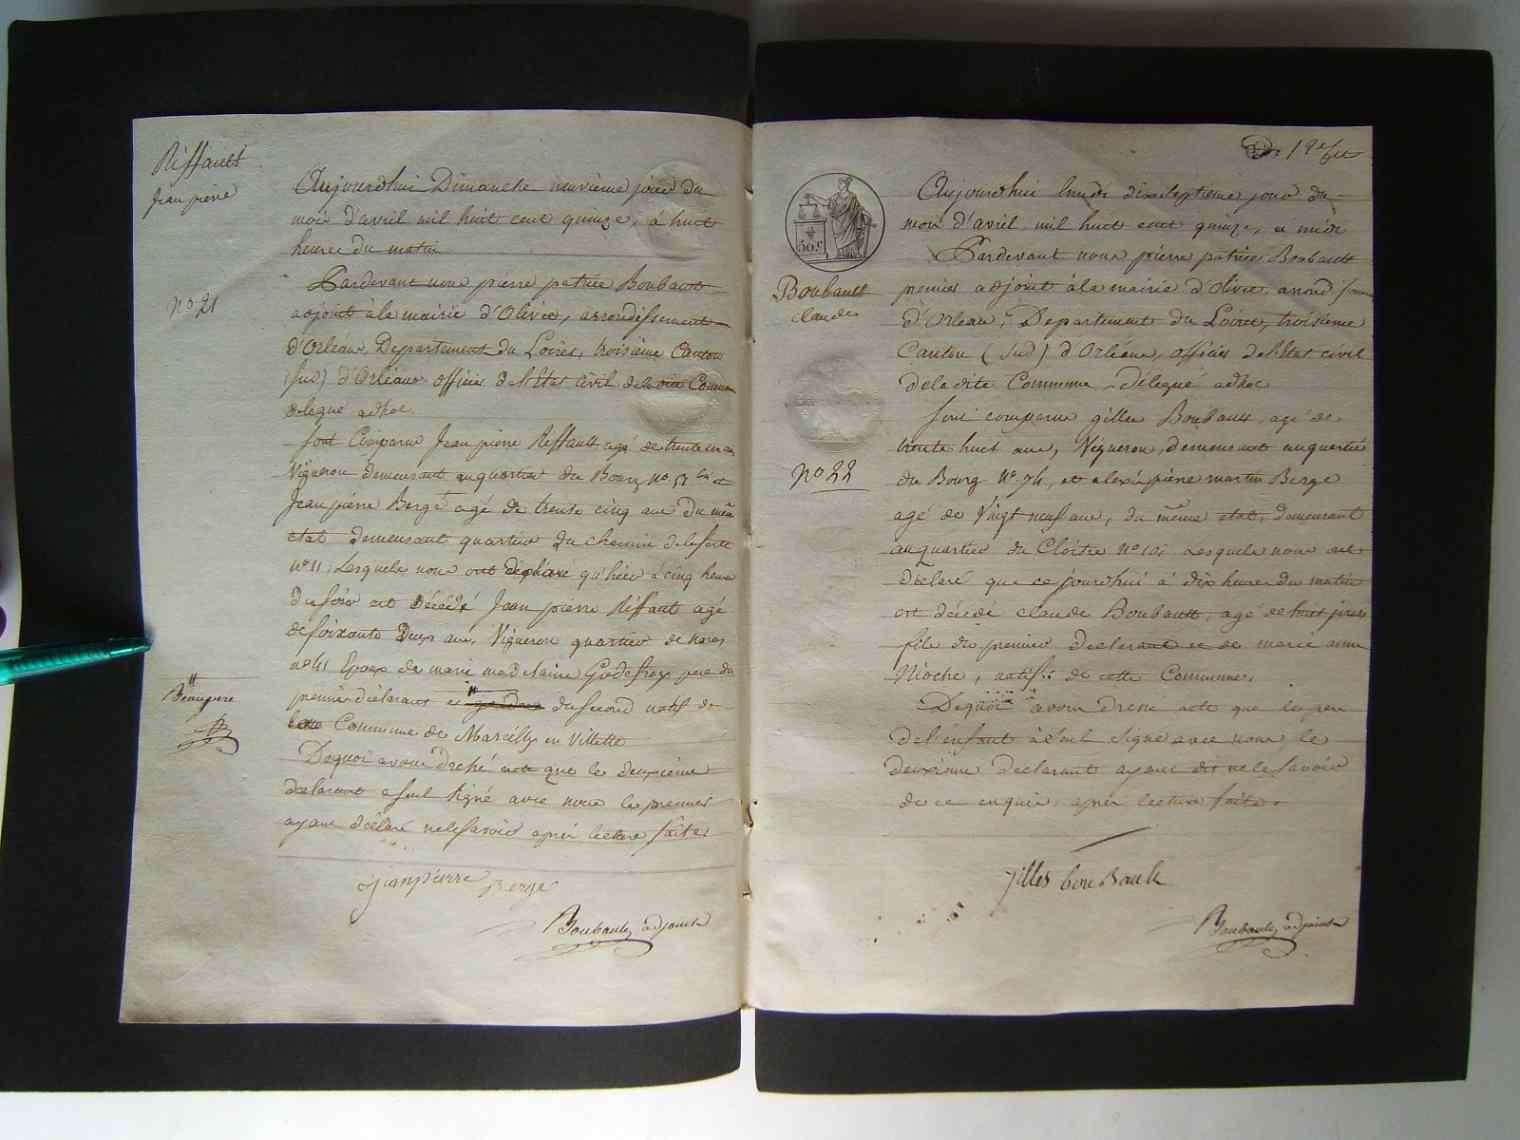 Riffault
Jean pierre
Aujourdhui Dimanche neuvieme jour du
mois d'avril mil huit cent quinze, à huit
heures du matin
Pardevant nous pierre patrice Boubault
adjoint à la mairie d'Olivet, arrondissement
d'Orleans, Departement du Loiret, troisième Canton
(Sud) d'Orléans officier de l'Etat civil de la dite Commune
délegué adhoc.
n° 21
Sont Comparus Jean pierre Riffault agé de trente un ans
Vigneron demeurant au quartier du Bourg n° 51 bis et
Jean pierre Bergé agé de trente cinq ans du même
etat demeurant quartier du chemin de la ferté
n° 11, Lesquels nous ont déclaré qu'hier à cinq heures
du soir est décédé Jean pierre Riffault agé
de soixante Deux ans, Vigneron quartier de
n° 41 Epoux de marie madelaine Godefroy pere du
premier déclarant et du second natif de
Beaupere
Commune de Marcilly en Villette
Dequoi avons dressé acte que le deuxième
déclarant a seul signé avec nous le premier
ayant déclaré ne le savoir après lecture faite.
Jean pierre Berge
Boubault adjoint
Aujourdhui lundi dixseptieme jour du
mois d'avril mil huit cent quinze, a midi
50 c
Pardevant nous pierre patrice Boubault
Boubault
claude
premier adjoint à la mairie d'Olivet arrond
d'Orleans, Departement du Loiret, troisième
Canton (Sud) d'Orléans, officier de l'Etat civil
de la dite Commune, délegué adhoc
Sont comparus gilles Boubault, agé de
trente huit ans, Vigneron, demeurant au quartier
n° 22
du Bourg n° 74, et alexis pierre martin Berge
agé de Vingt neuf ans, du même etat, demeurant
au quartier du Cloitre n° 101 Lesquels nous ont
déclaré que ce jourdhui à dix heures du matin
est décédé claude Boubault, agé de huit jours
fils du premier declarant et de marie anne
Rioche, natif de cette Commune.
Dequoi avons dressé acte que le pere
de l'enfant à seul signé avec nous le
deuxieme declarant ayant dit ne le savoir
de ce enquis, après lecture faite.
gilles bou Bault
Boubault adjoint